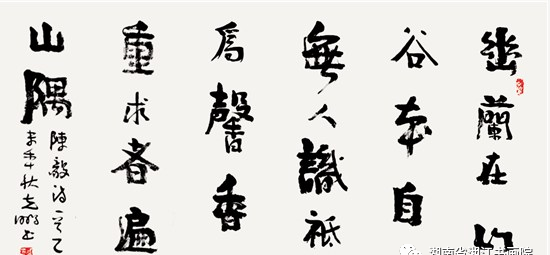 幽蘭在山
谷本自
無人識祇
爲馨香
重求者遍
山隅
陳毅诗一首乙
未年秋书
湖南省湘江书画院